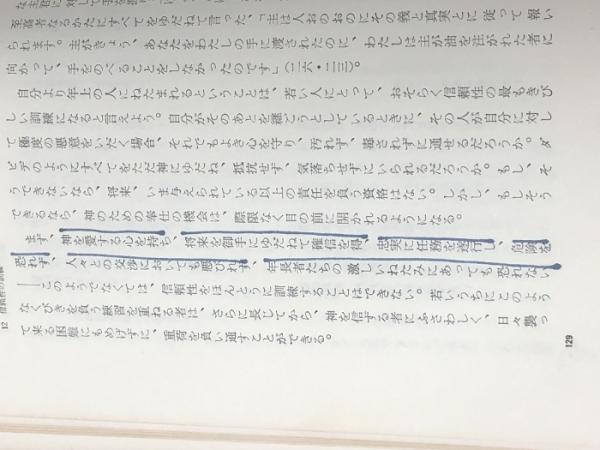 至高者なるかたにすべてをゆだねて言った、「主は人おのおのにその義と真実とに従って報い
られます。主がきょう、あなたをわたしの手に渡されたのに、わたしは主が油を注がれた者に
向かって、手をのべることをしなかったのです」（二六・二三）。
自分より年上の人にねたまれるということは、若い人にとって、おそらく信頼性の最もきび
しい訓練になると言えよう。自分がそのあとを継ごうとしているときに、その人が自分に対し
て極度の悪意をいだく場合、それでもよき心を守り、汚れず、毒されずに通せるだろうか。ダ
ビデのようにすべてをただ神にゆだね、抵抗せず、気落ちせずにいられるだろうか。もし、そ
うできないなら、将来、いま与えられている以上の責任を負う資格はない。しかし、もしそう
できるなら、神のための奉仕の機会は、際限なく目の前に開かれるようになる。
まず、神を愛する心を持ち、将来を御手にゆだねて確信を得、忠実に任務を遂行し、危険を
恐れず、人々との交渉においても悪びれず、年長者たちの激しいねたみにあっても恐れない
──このようでなくては、信頼性をほんとうに訓練することはできない。若いうちにこのよう
なくびきを負う練習を重ねる者は、さらに長じてから、神を信ずる者にふさわしく、日々襲っ
て来る困難にもめげずに、重荷を負い通すことができる。
12
129